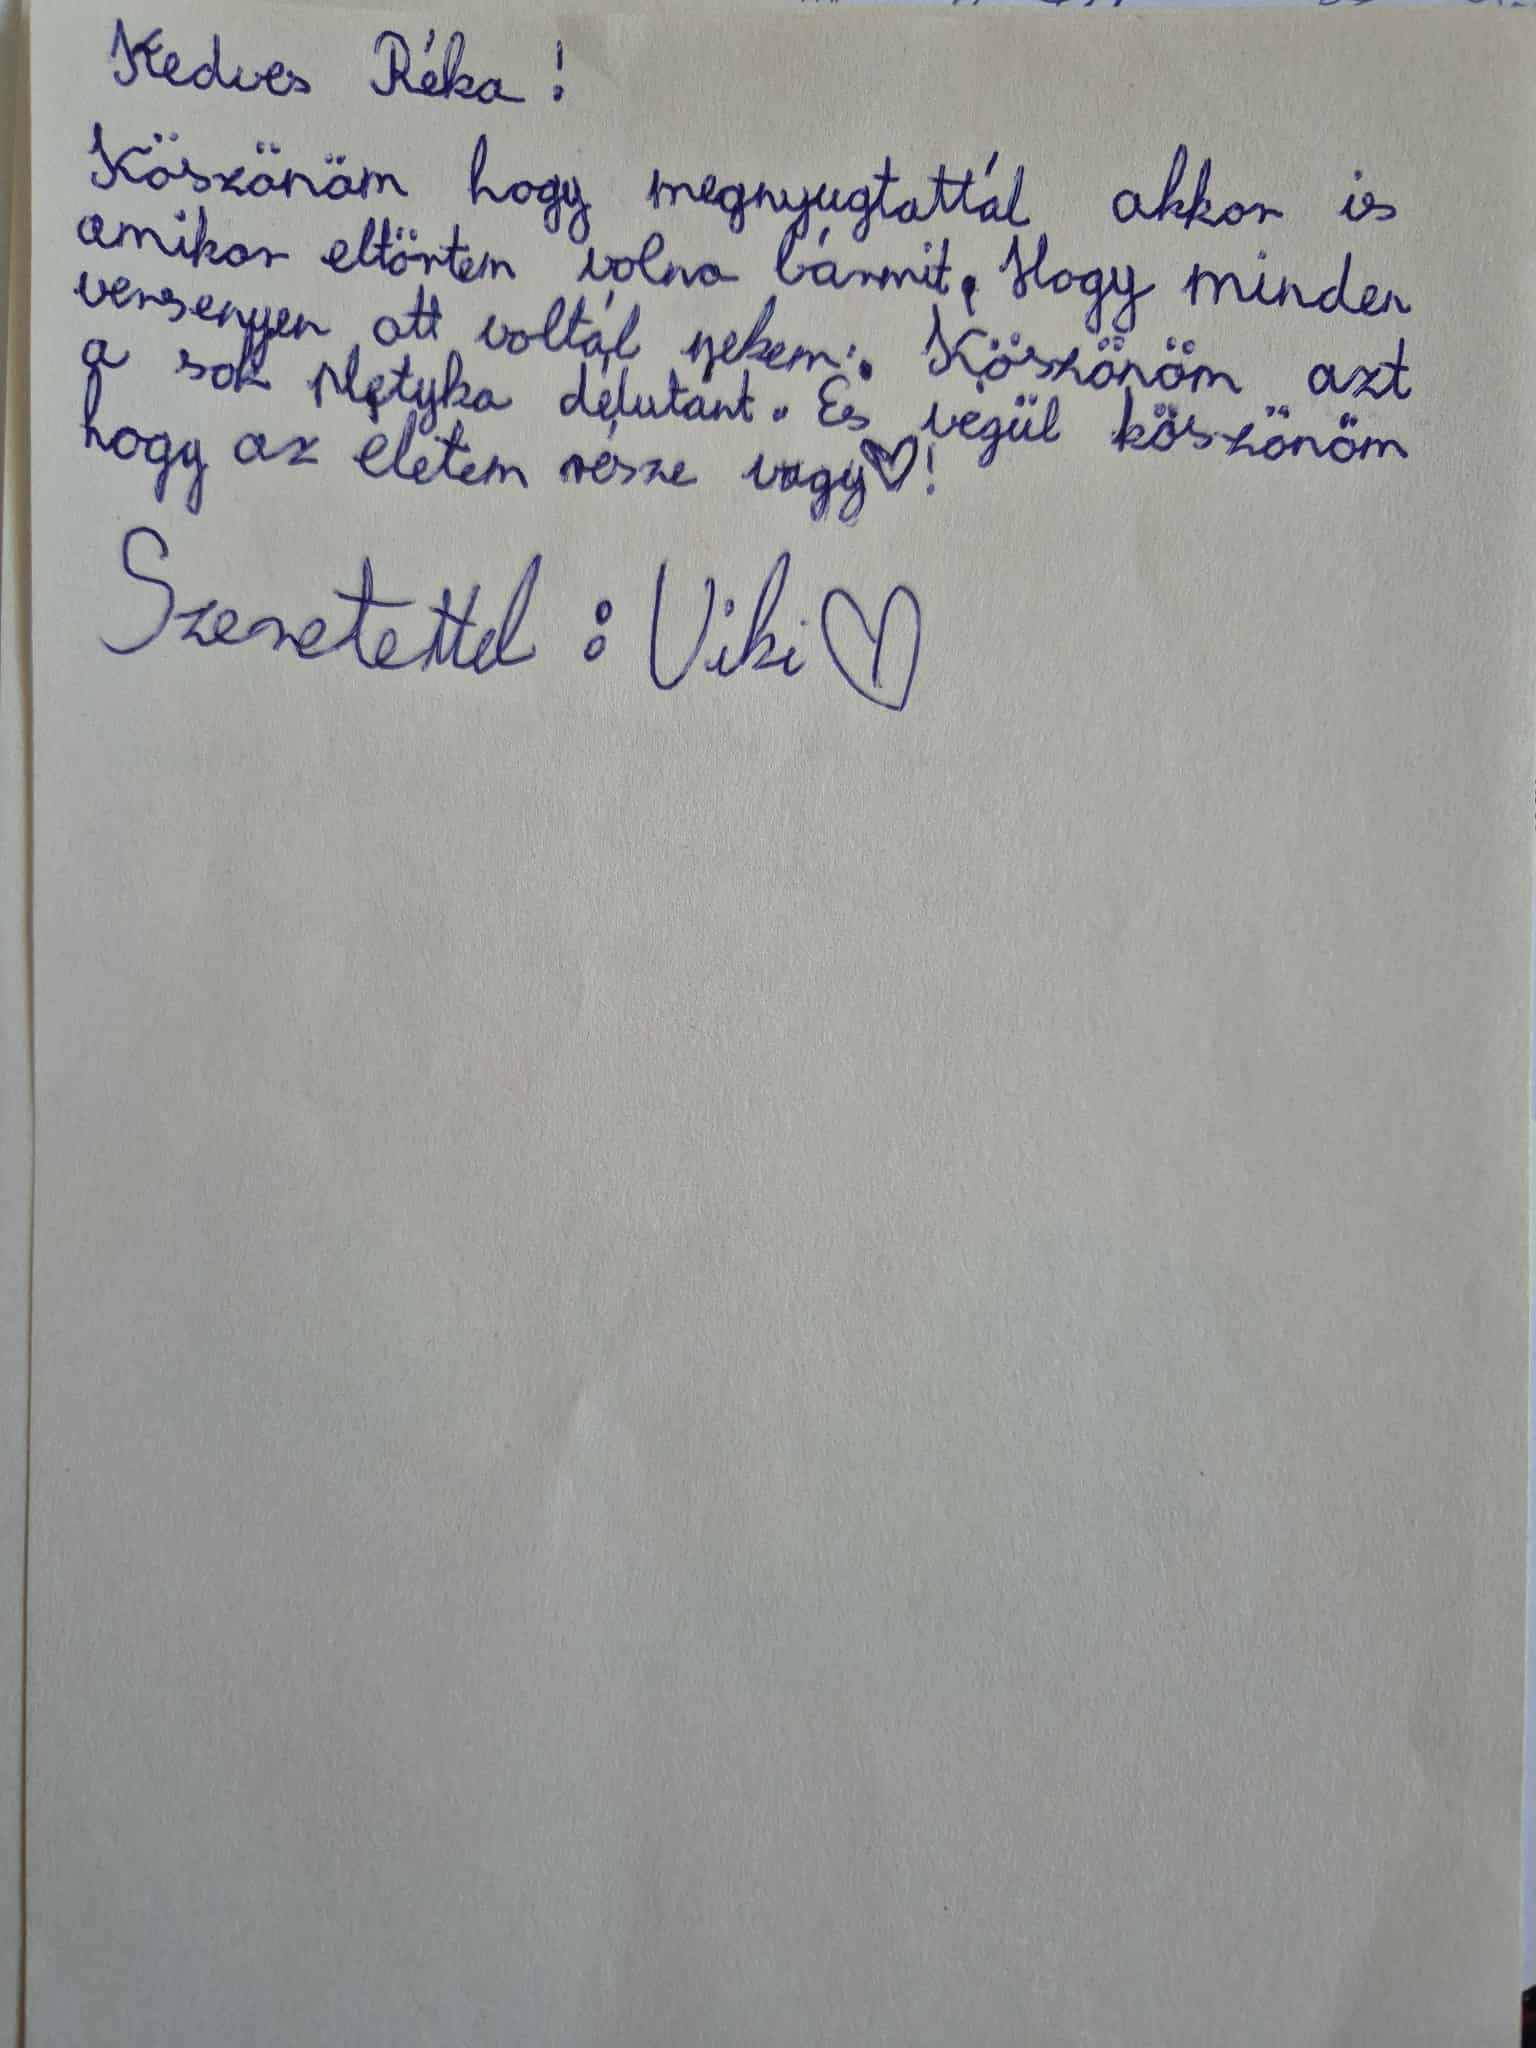 Kedves Réka!
Köszönöm hogy megnyugtattál akkor is
amikor eltörtem volna bármit. Hogy minden
versenyen ott voltál nekem. Köszönöm azt
a sok pletyka délutánt. És végül köszönöm
hogy az életem része vagy♡!
Szeretettel : Viki♡